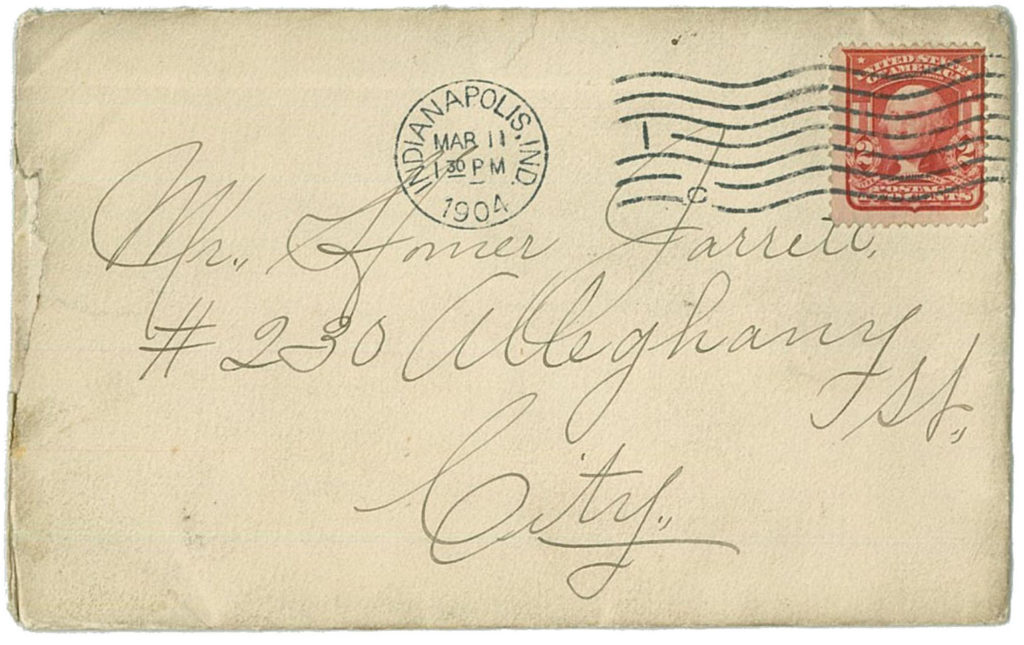 INDIANAPOLIS, IND.
MAR 11
1 30 PM
1904
1
C
UNITED STATES
OF AMERICA
2 2
POSTAGE
TWO CENTS
Mr. Homer Jarrett,
# 230 Alleghany
St.,
City.